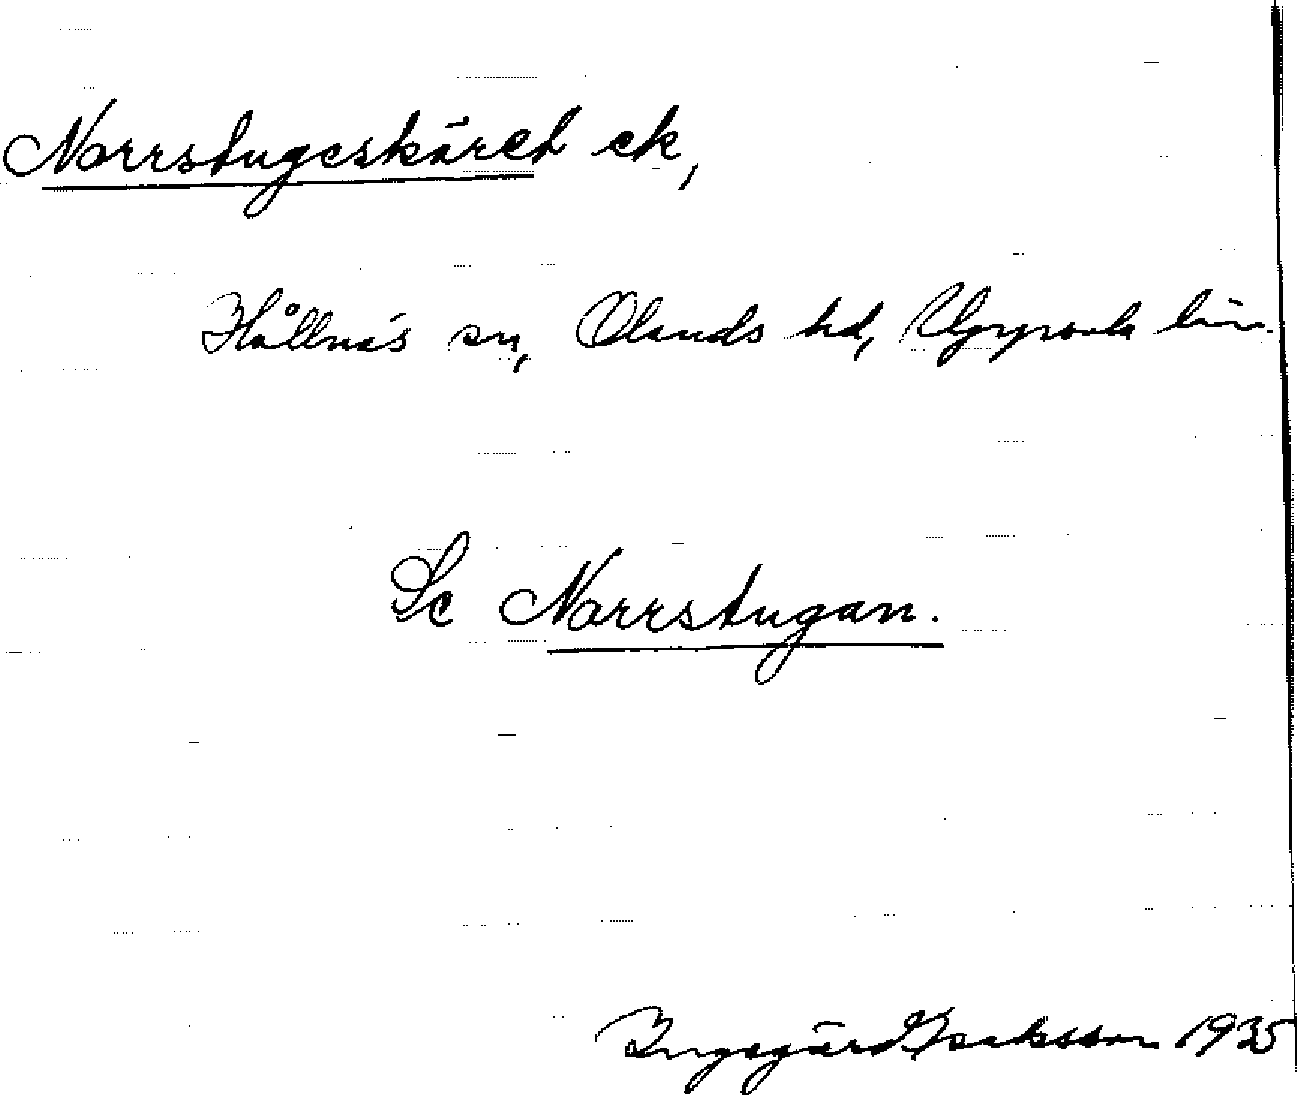 Norrstugeskäret ek,
Hållnäs sn, Olands hd, Uppsala län.
Se Norrstugan.
Ingegärd Isaksson 1935